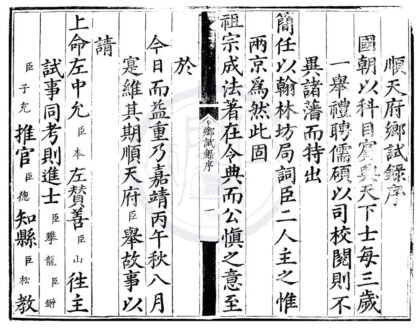 順天府鄉試錄序
國朝以科目賓興天下士每三歲
一舉禮聘儒碩以司校閱則不
異諸藩而特出
簡任以翰林坊局詞臣二人主之惟
兩京爲然此固
祖宗成法著在令典而公慎之意至
鄉試錄序 一
於
今日而益重乃嘉靖丙午秋八月
寔維其期順天府臣舉故事以
請
上命左中允臣本左贊善臣山徃主
試事同考則進士臣攀龍臣
臣子充推官臣知縣臣松教